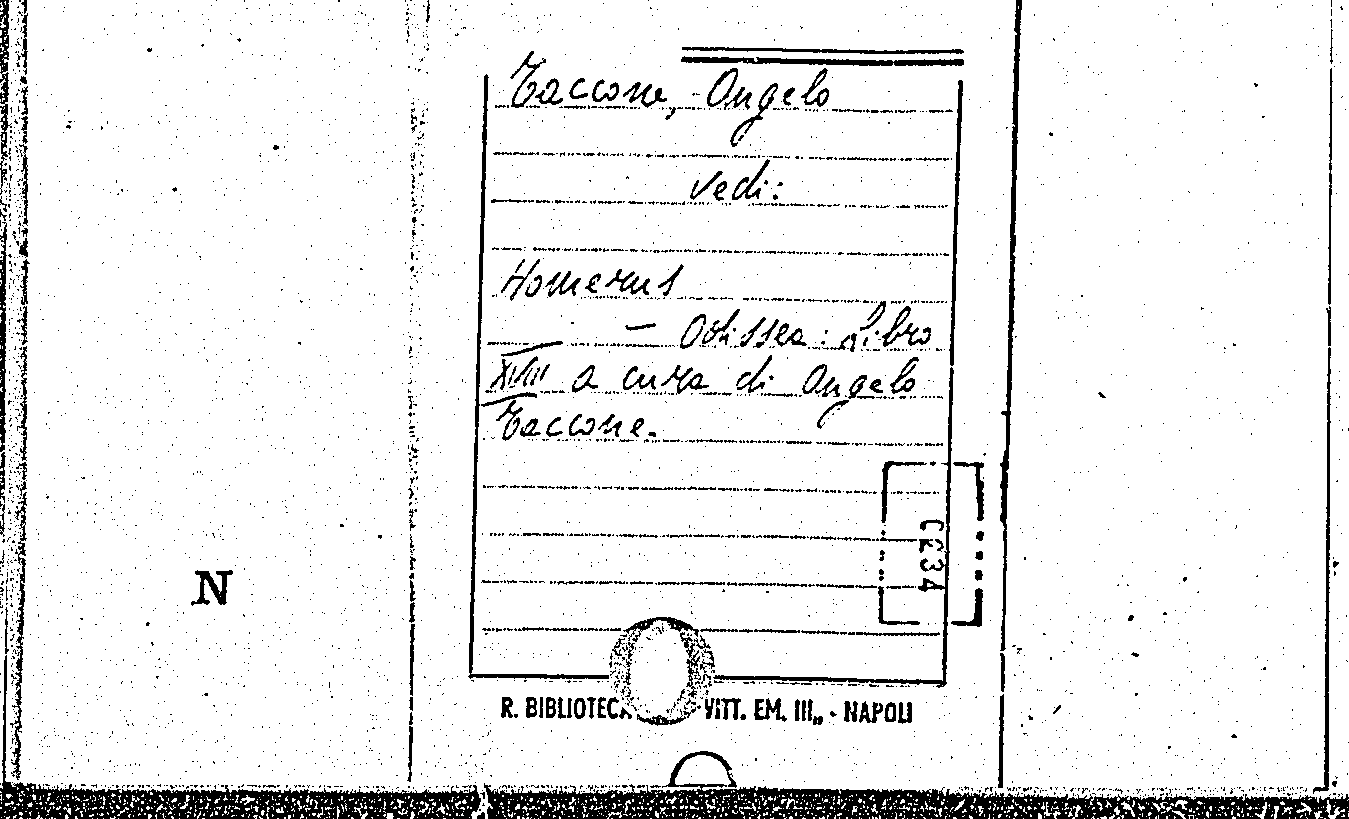 Taccone, Angelo
Vedi:
Homerus
— Odissea: Libro
a cura di Angelo
Taccone.
N
0234
R. BIBLIOTECA VITT. EM. III„ - NAPOLI